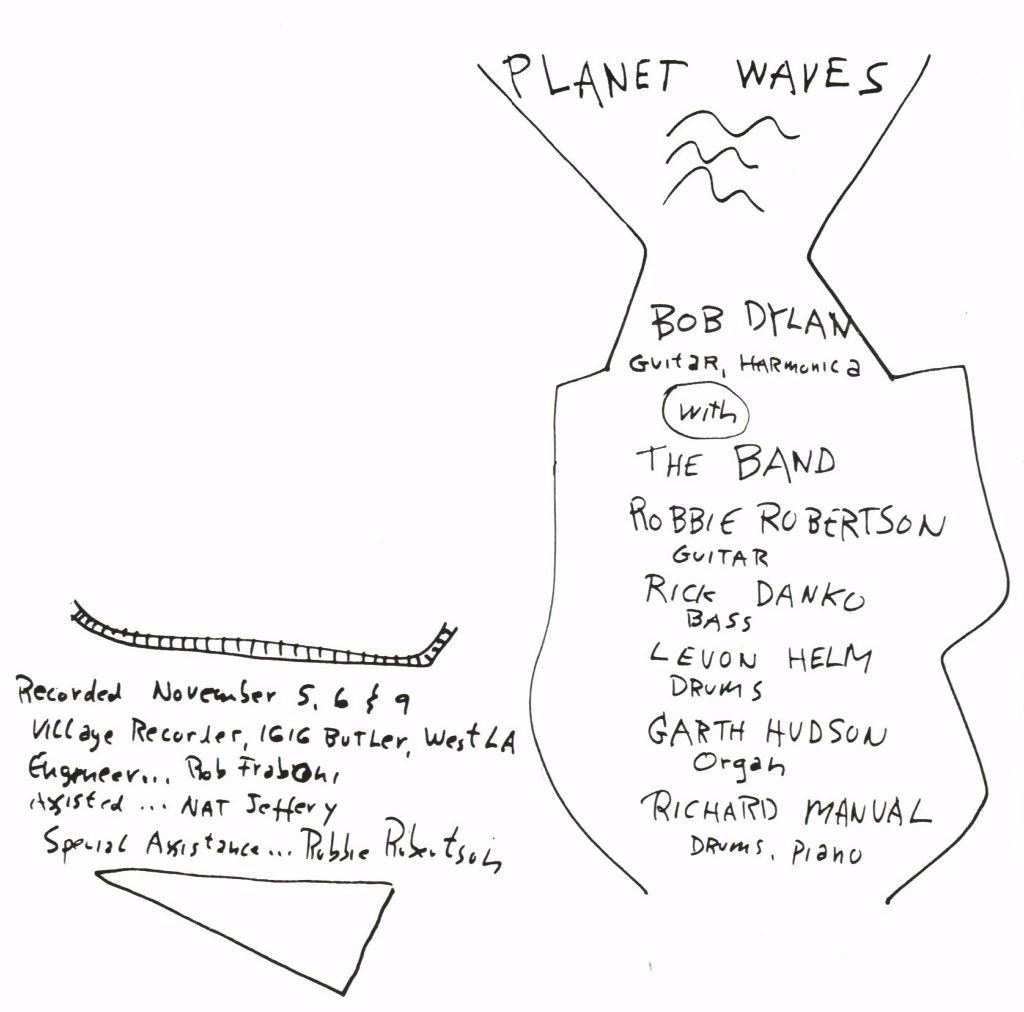 PLANET WAVES
BOB DYLAN
GuitaR, HARmonica
with
THE BAND
ROBBIE ROBERTSON
GUITAR
RICK DANKO
BASS
LEVON HELM
DRUMS
GARTH HUDSON
Organ
RICHARD MANUAL
DRums, piano
Recorded November 5, 6 & 9
Village Recorder, 1616 BUTLER, West LA
Engineer... Rob Fraboni
Assisted ... NAT Jeffery
Special Assistance... Robbie Robertson